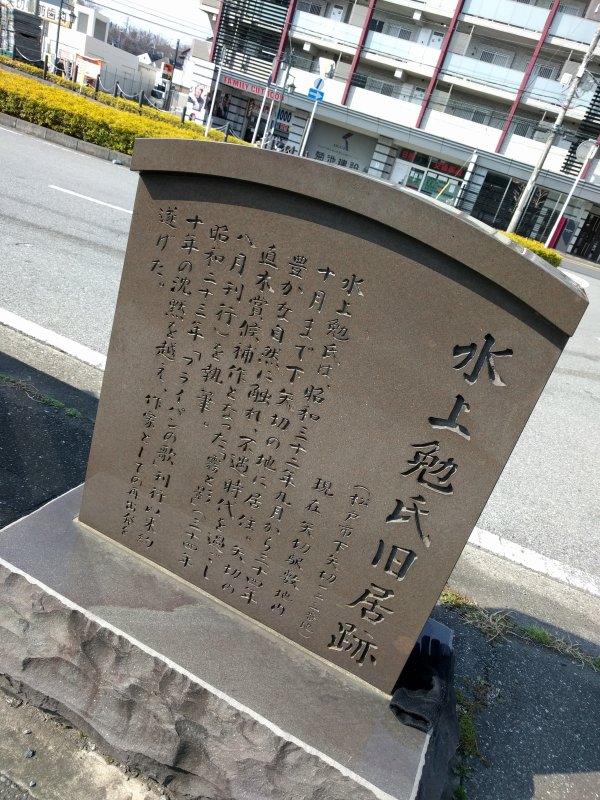 水上勉氏旧居跡
(松戸市下矢切一二番地)
現在 矢切駅敷地内
水上勉氏は、昭和三十二年九月から三十四年
十月まで下矢切の地に居住。矢切の
豊かな自然に触れ、不遇時代を過ごし
直木賞候補作となった「霧と影」(三十四年
八月刊行)を執筆。
昭和二十三年「フライパンの歌」刊行以来約
十年の沈黙を越え、作家としての再出発を
遂げた。
FAMILY CUT
1000
菊池建設
歯